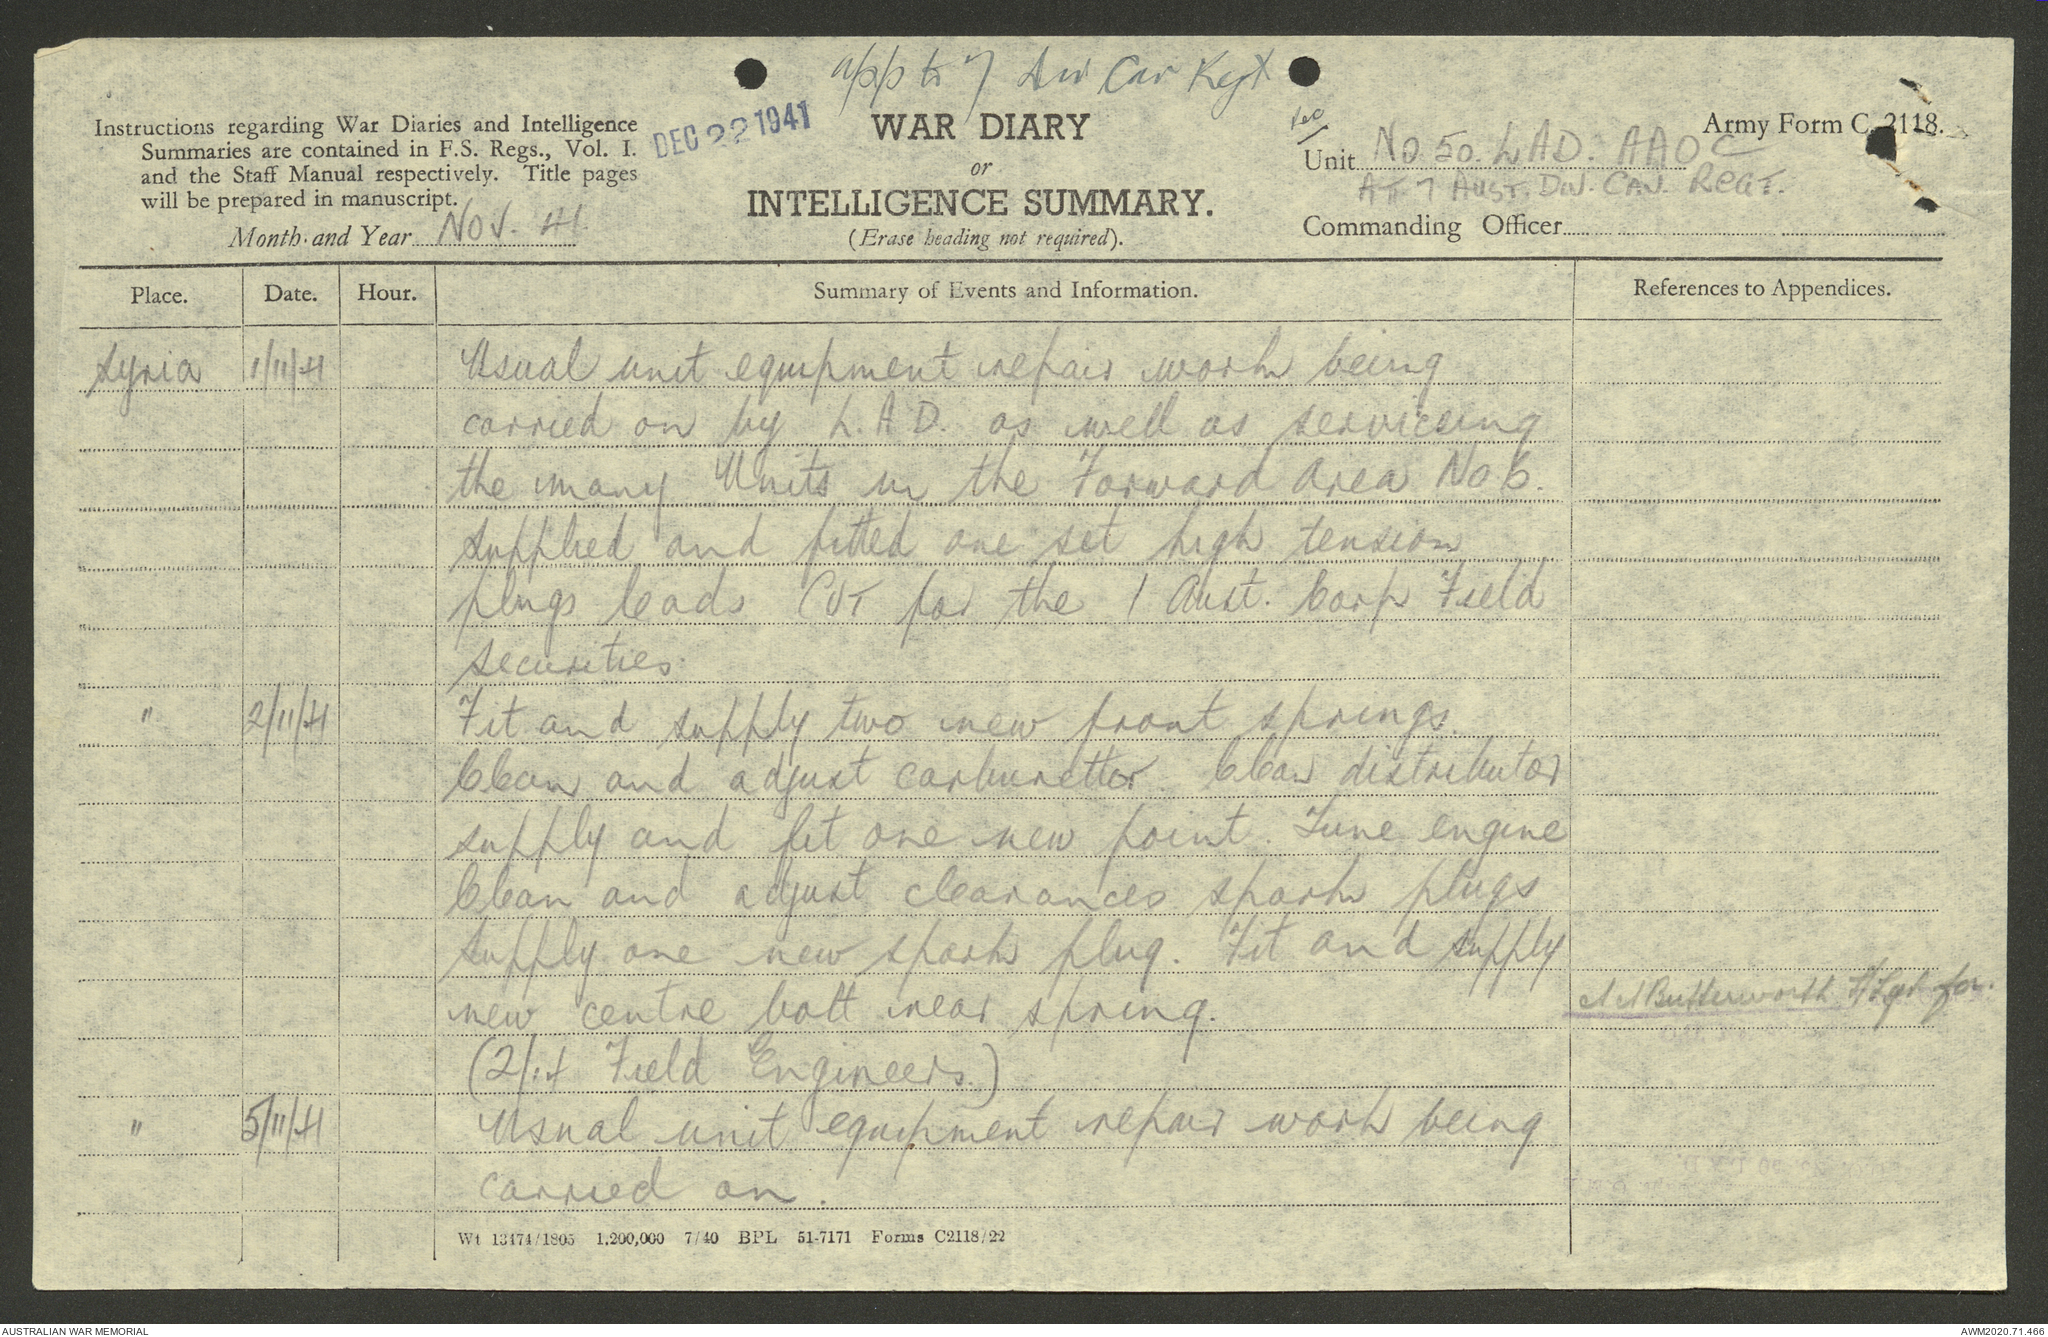 app to 7 Div Cav Regt
Instructions regarding War Diaries and Intelligence
Summaries are contained in F.S. Regs., Vol. I.
and the Staff Manual respectively. Title pages
will be prepared in manuscript.
Month and Year NOV. 41
DEC 22 1941
WAR DIARY
or
INTELLIGENCE SUMMARY.
(Erase heading not required).
Army Form C. 2118.
Unit No 50. LAD. AAOC
ATT 7 AUST. DIV. CAV. REGT.
Commanding Officer
Place. Date. Hour. Summary of Events and Information. References to Appendices.
Syria 1/11/41 Usual unit equipment repair work being
carried on by L.A.D. as well as servicing
the many Units in the Forward Area No 6.
Supplied and fitted one set high tension
plugs leads for the 1 Aust. Corp Field
Securities
" 2/11/41 Fit and supply two new front springs.
Clean and adjust carburettor. Clean distributor
supply and fit one new point. Tune engine
Clean and adjust clearances spark plugs
supply one new spark plug. Fit and supply
new centre bolt rear spring.
Butterworth
(2/1st Field Engineers.)
" 5/11/41 Usual unit equipment repair work being
carried on.
Wt 13474/1805 1,200,000 7/40 BPL 51-7171 Forms C2118/22
AUSTRALIAN WAR MEMORIAL
AWM2020.71.466